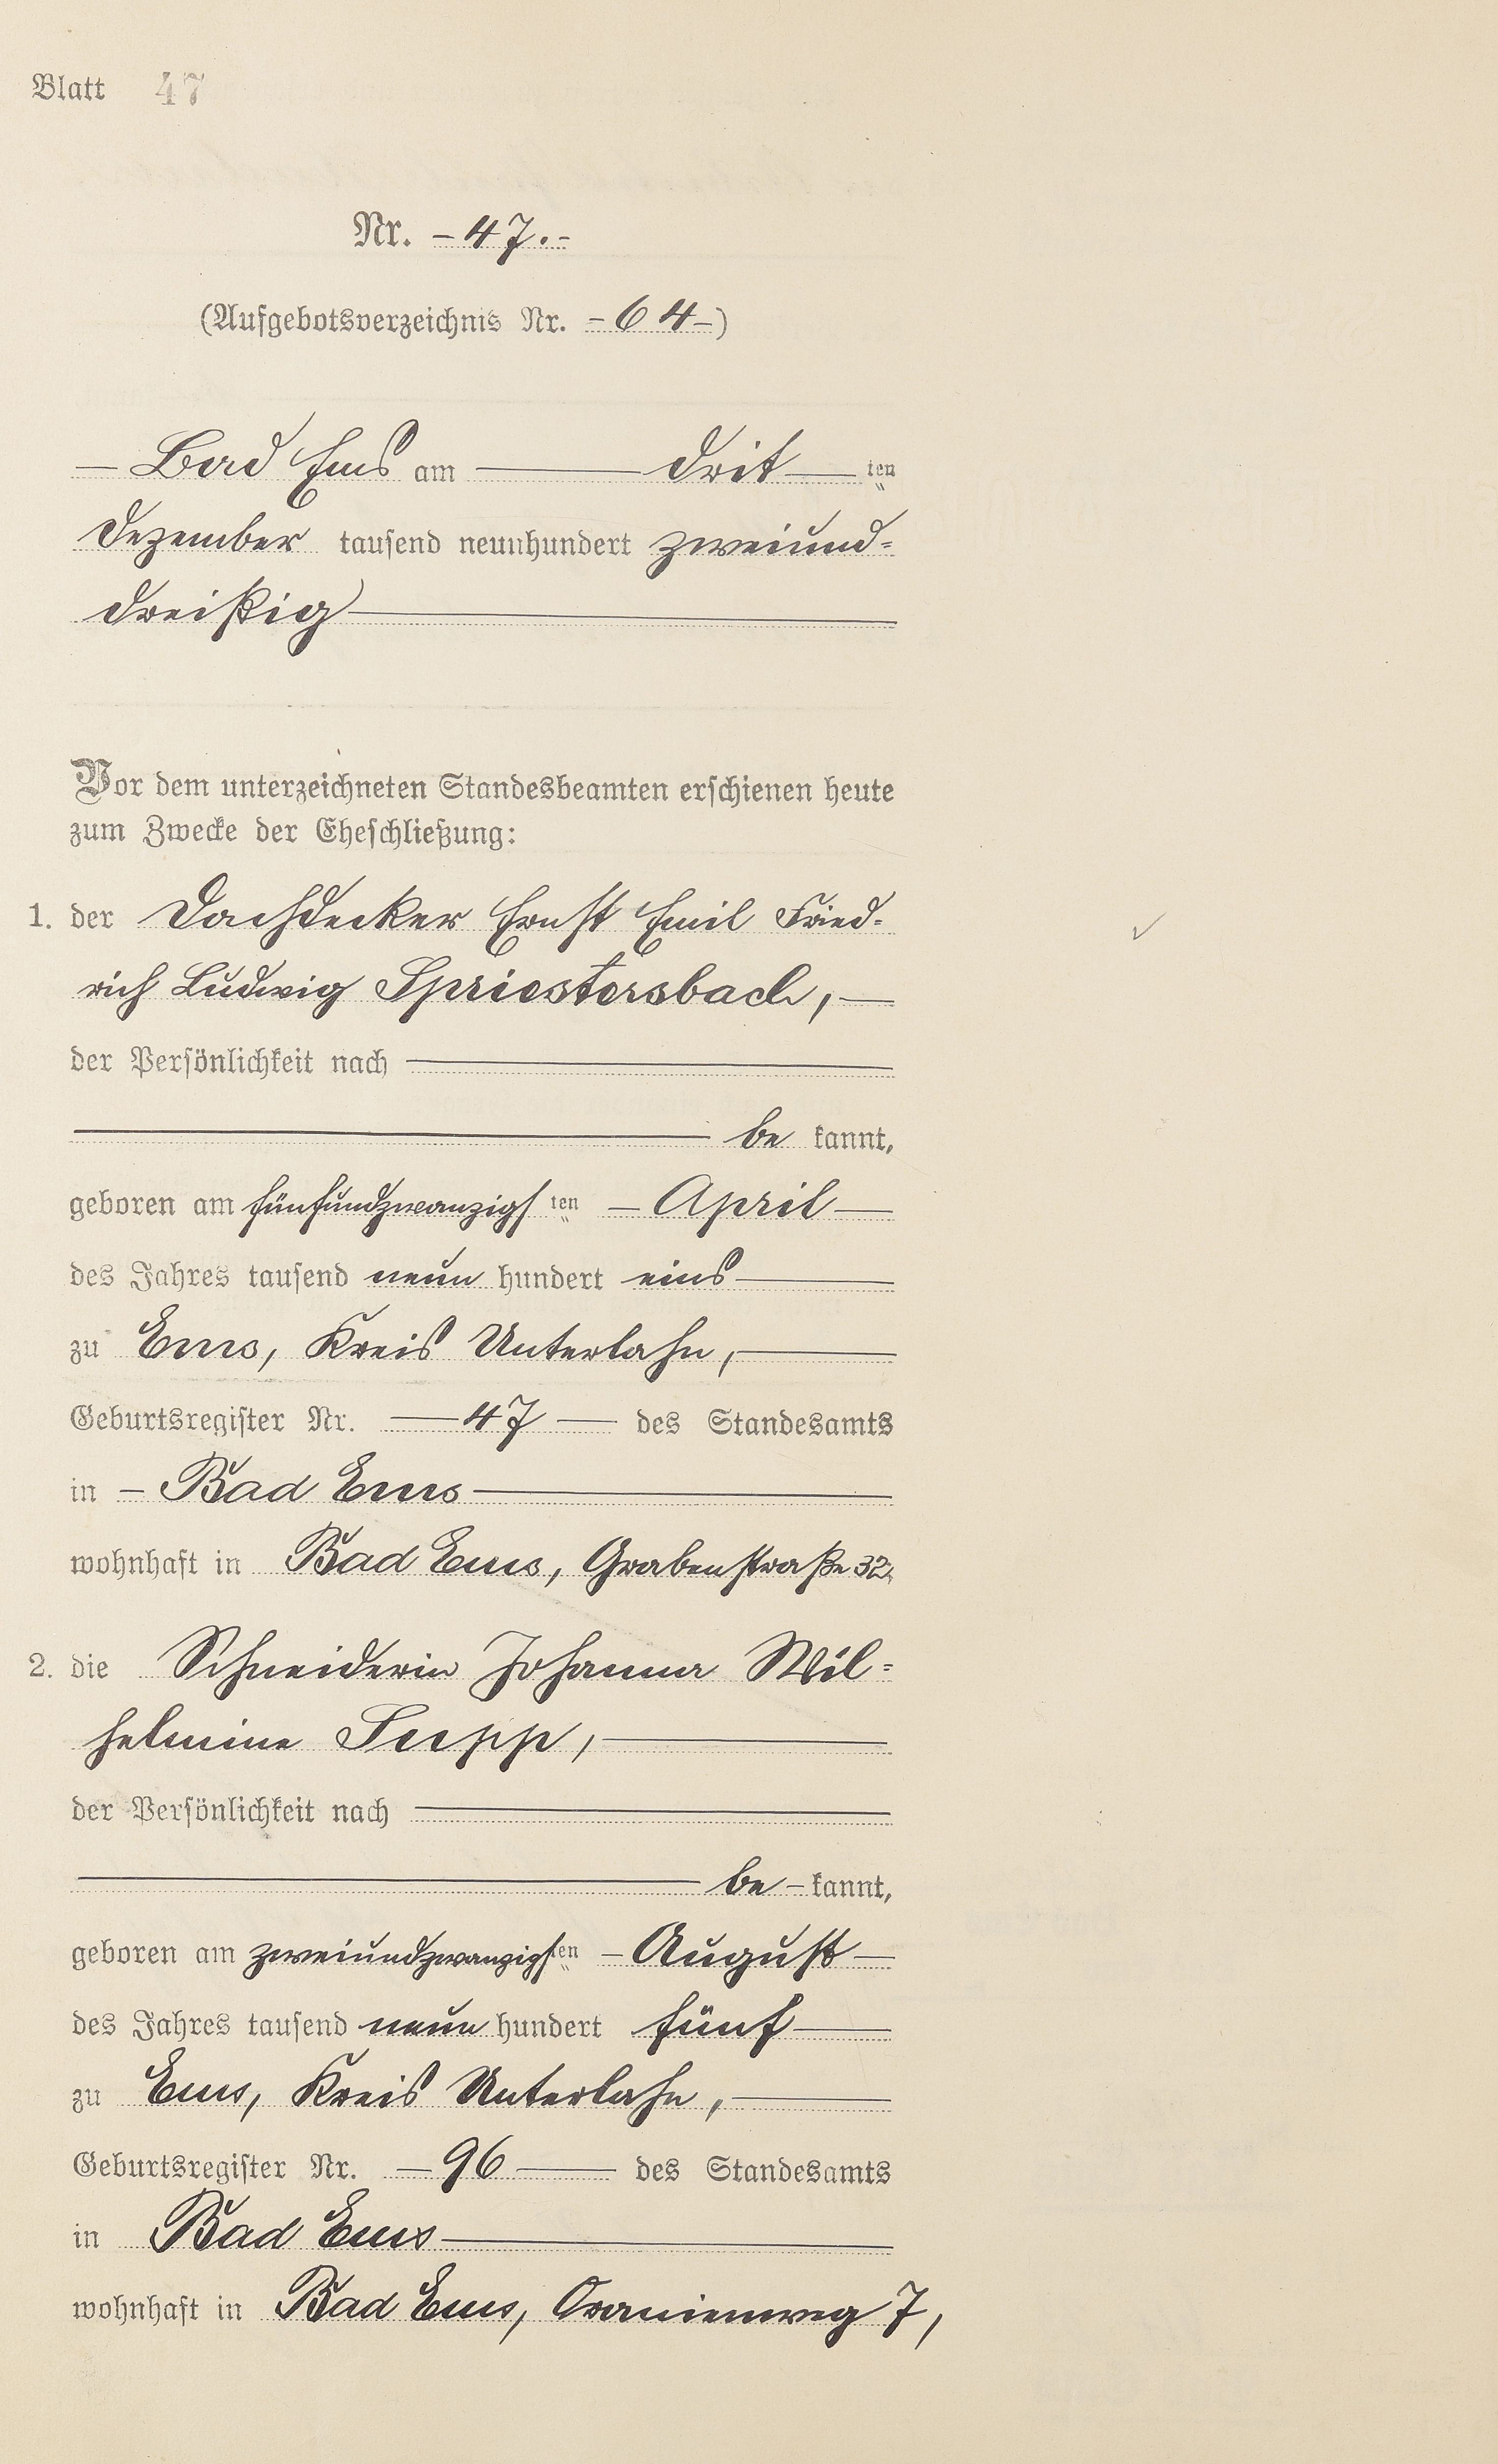 Blatt 47
Nr. – 47. –
(Aufgebotsverzeichnis Nr. – 64 –)
— Bad Ems am — drit — ten
Dezember tausend neunhundert zweiund=
dreißig —
Vor dem unterzeichneten Standesbeamten erschienen heute
zum Zwecke der Eheschließung:
1. der Dachdecker Ernst Emil Fried=
rich Ludwig Spriestersbach, —
der Persönlichkeit nach —
— be kannt,
geboren am fünfundzwanzigsten — April —
des Jahres tausend neun hundert eins —
zu Ems, Kreis Unterlahn, —
Geburtsregister Nr. — 47 — des Standesamts
in – Bad Ems —
wohnhaft in Bad Ems, Grabenstraße 32,
2. die Schneiderin Johanna Wil=
helmine Supp, —
der Persönlichkeit nach —
— be – kannt,
geboren am zweiundzwanzigsten – August —
des Jahres tausend neun hundert fünf —
zu Ems, Kreis Unterlahn, —
Geburtsregister Nr. — 96 — des Standesamts
in Bad Ems —
wohnhaft in Bad Ems, Oranienweg 7,